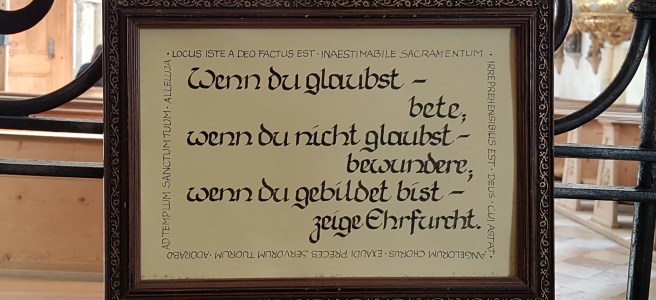 · LOCUS ISTE A DEO FACTUS EST · INAESTIMABILE SACRAMENTUM ·
IRREPREHENSIBILIS EST · DEUS · CUI ASTAT ·
ANGELORUM CHORUS · EXAUDI PRECES SERVORUM TUORUM · ADORABO
AD TEMPLUM SANCTUM TUUM · ALLELUJA
Wenn du glaubst –
bete;
wenn du nicht glaubst –
bewundere;
wenn du gebildet bist –
zeige Ehrfurcht.